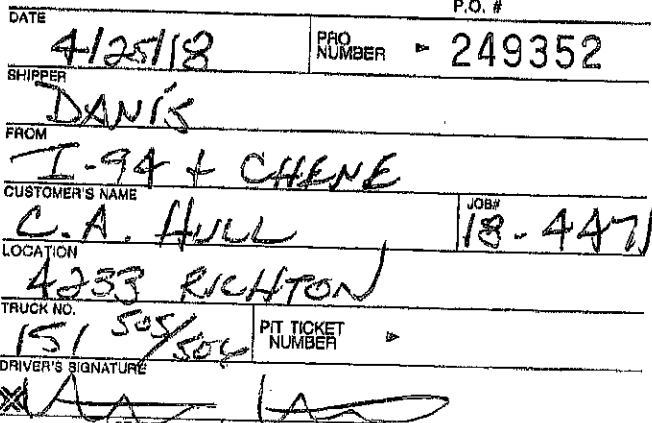 P.O. #
DATE
4/25/18
PRO NUMBER ► 249352
SHIPPER
DANIS
FROM
I-94 + CHENE
CUSTOMER'S NAME
C.A. HULL
JOB#
18-4471
LOCATION
4233 RICHTON
TRUCK NO.
151 505/506
PIT TICKET NUMBER ►
DRIVER'S SIGNATURE
X